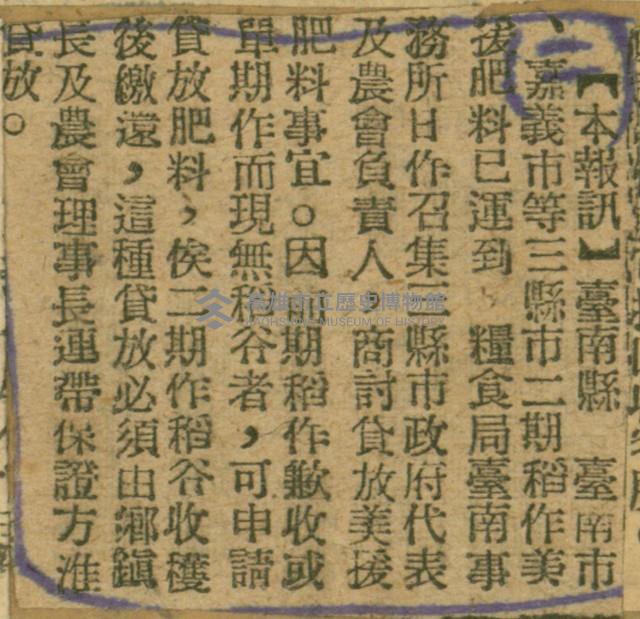 二
【本報訊】臺南縣 臺南市
、嘉義市等三縣市二期稻作美
援肥料已運到 糧食局臺南事
務所日作召集三縣市政府代表
及農會負責人 商討貸放美援
肥料事宜。因一期稻作歉收或
單期作而現無稻谷者,可申請
貸放肥料,俟二期作稻谷收穫
後繳還,這種貸放必須由鄉鎮
長及農會理事長連帶保證方准
貸放。
高雄市立歷史博物館
KAOHSIUNG MUSEUM OF HISTORY